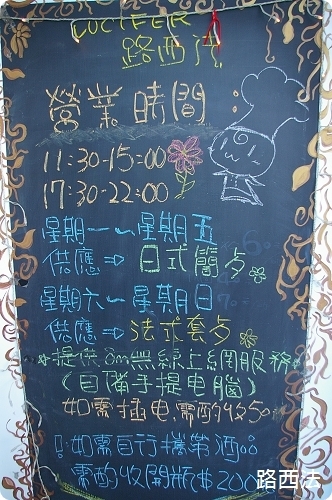 LUCIFEER
路西法
營業時間:
11:30-15:00
17:30-22:00
星期一~星期五
供應⇒日式簡夕
星期六~星期日
供應⇒法式套夕
*提供ADM無線上網服務*
(自備手提电腦)
如需插电需酌收50
!如需自行攜帶酒
需酌收開瓶$200
路西法